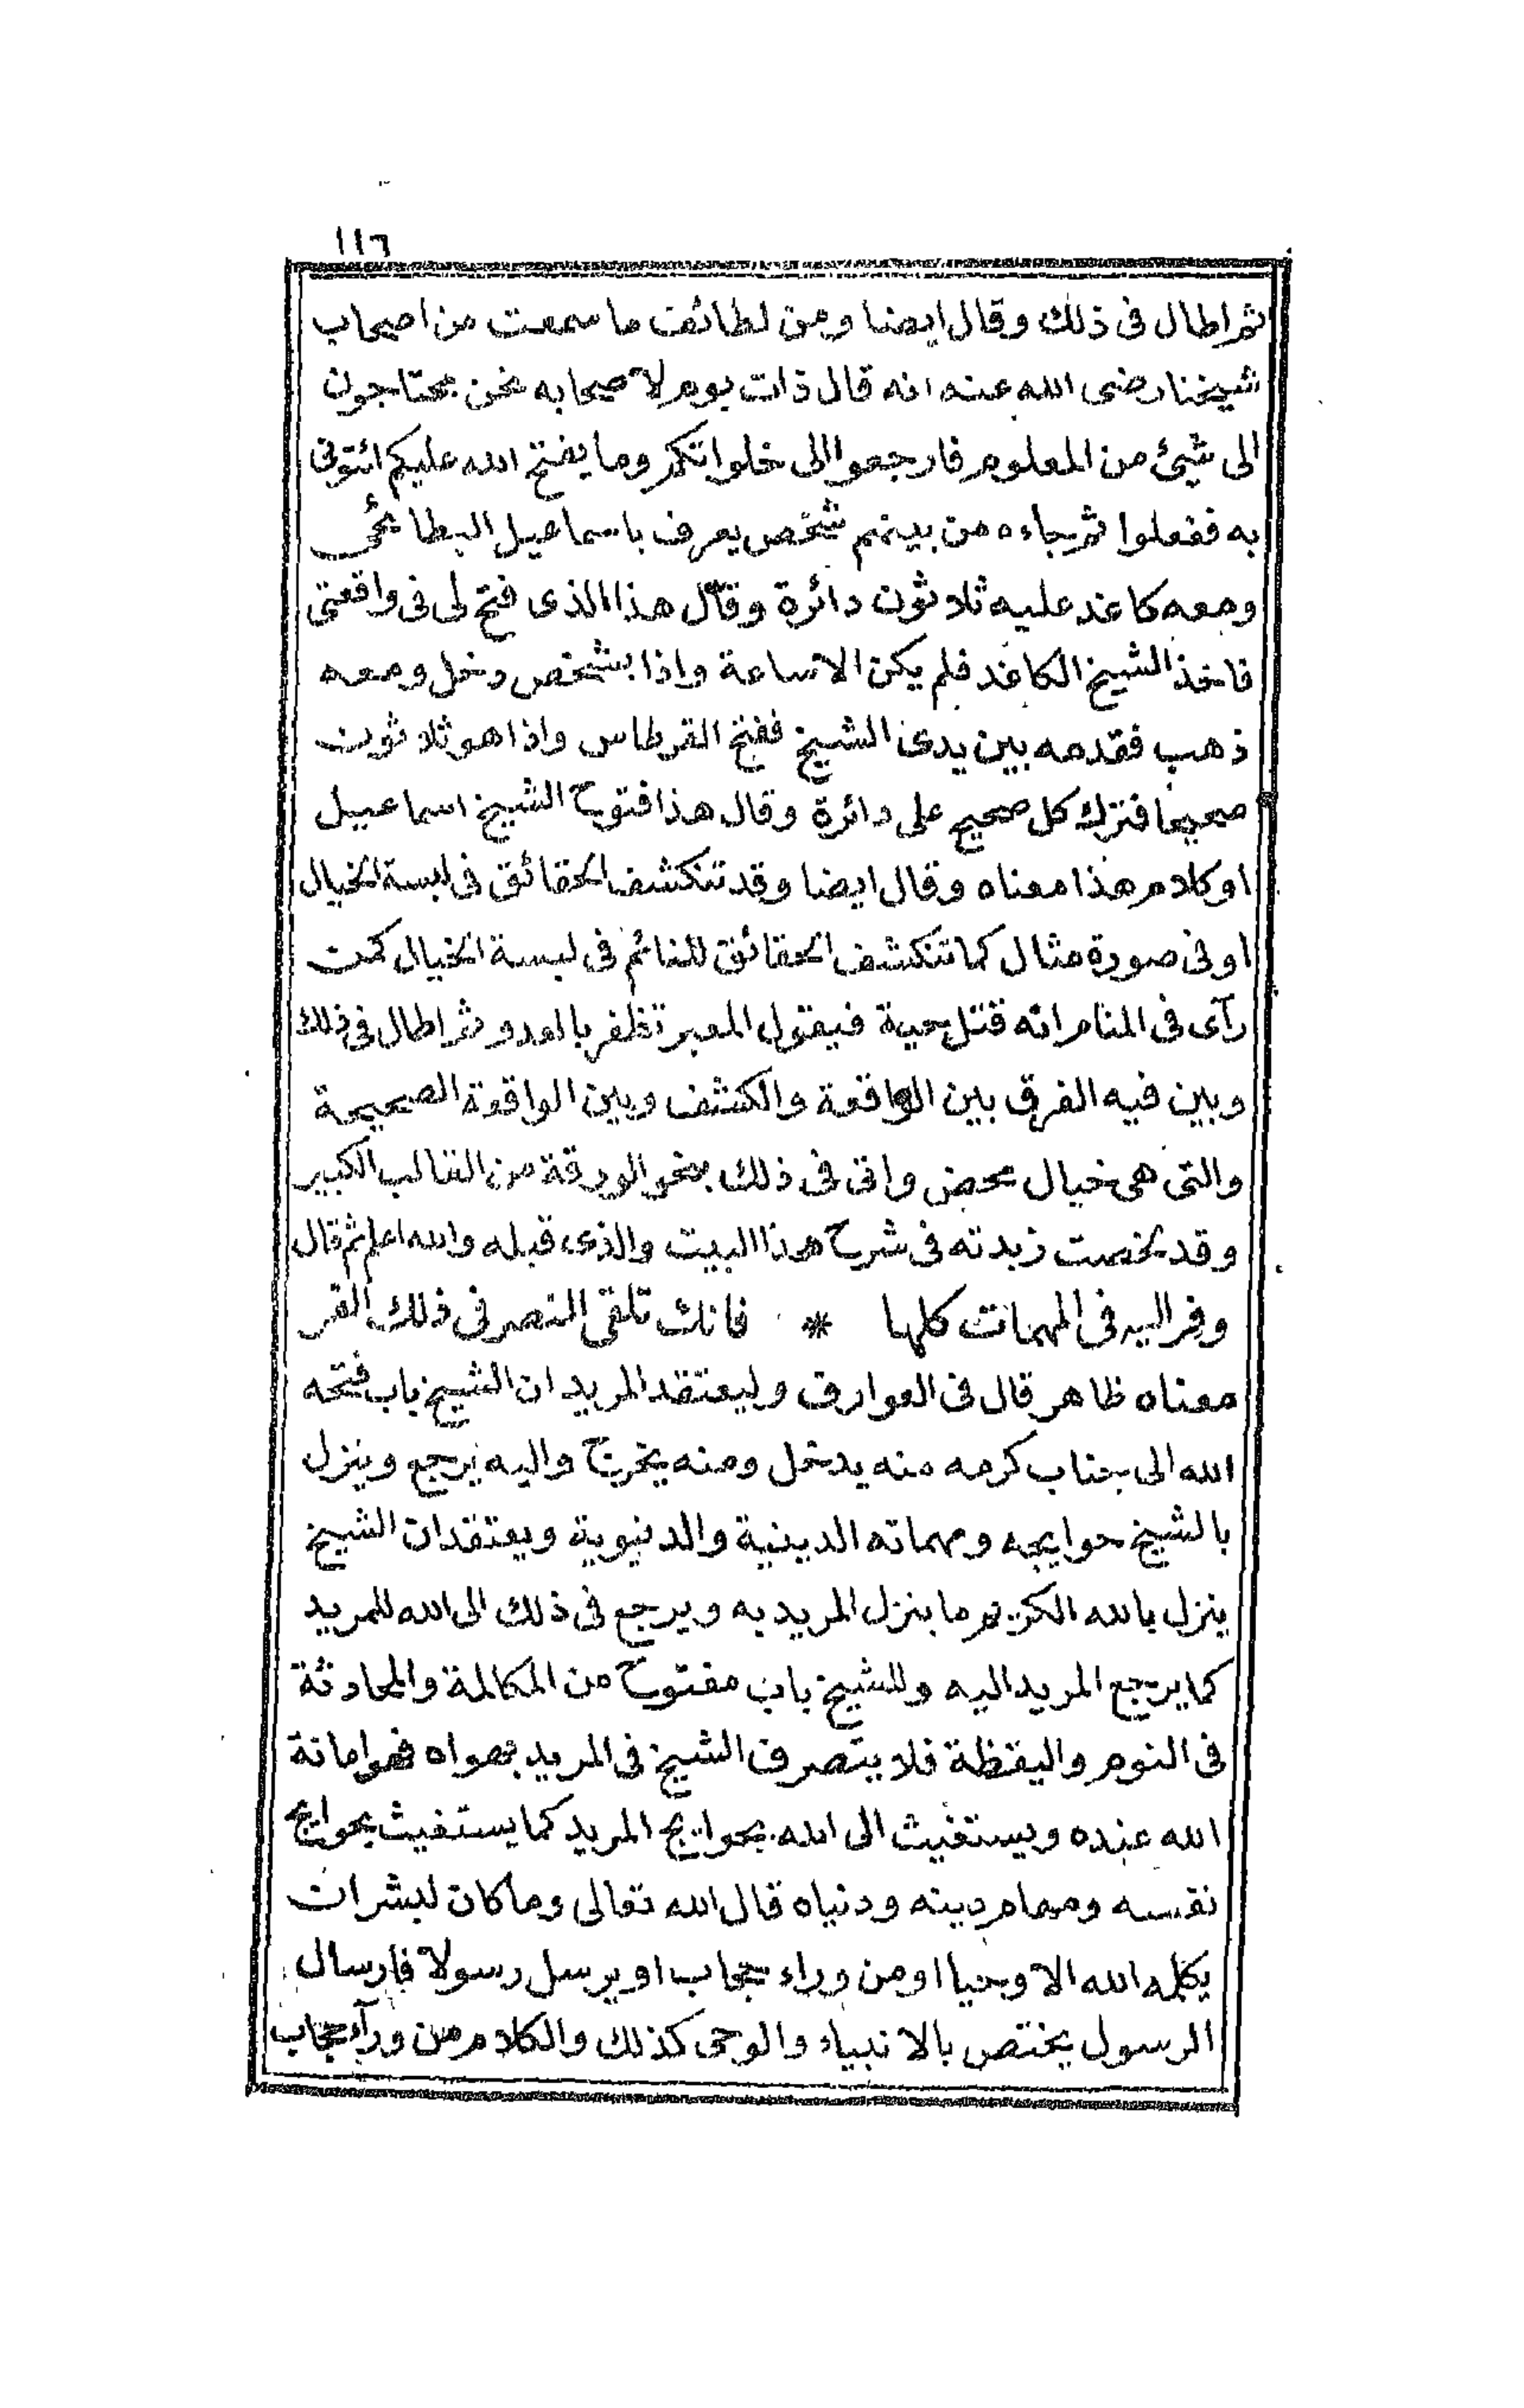 ١١٦
ثم اطال فى ذلك وقال ايضا ومن لطائف ما سمعت من اصحاب
شيخنا رضى الله عنه انه قال ذات يوم لاصحابه نحن محتاجون
الى شيئ من المعلوم فارجعوا الى خلواتكم وما يفتح الله عليكم ائتونى
به ففعلوا ثم جاءه من بينهم شخص يعرف باسماعيل البطائحى
ومعه كاغد عليه ثلاثون دائرة وقال هذا الذى فتح لى فى واقعتى
فاخذ الشيخ الكاغد فلم يكن الا ساعة واذا بشخص دخل ومعه
ذهب فقدمه بين يدى الشيخ ففتح القرطاس واذا هو ثلاثون
صحيحا فترك كل صحيح على دائرة وقال هذا فتوح الشيخ اسماعيل
او كلام هذا معناه وقال ايضا وقد تنكشف الحقائق فى لبسة الخيال
او فى صورة مثال كما تنكشف الحقائق للنائم فى لبسة الخيال كمن
رآى فى المنام انه قتل حية فيقول المعبر تظفر بالعدو ثم اطال فى ذلك
وبين فيه الفرق بين الواقعة والكشف وبين الواقعة الصحيحة
والتى هى خيال محض واتى فى ذلك بنحو الورقة من القالب الكبير
وقد لخصت زبدته فى شرح هذا البيت والذى قبله والله اعلم ثم قال
وفر اليه فى المهمات كلها * فانك تلقى النصر فى ذلك الفر
معناه ظاهر قال فى العوارف وليعتقد المريد ان الشيخ باب فتحه
الله الى جناب كرمه منه يدخل ومنه يخرج واليه يرجع وينزل
بالشيخ حوايجه ومهماته الدينية والدنيوية ويعتقد ان الشيخ
ينزل بالله الكريم ما ينزل المريد به ويرجع فى ذلك الى الله للمريد
كما يرجع المريد اليه وللشيخ باب مفتوح من المكالمة والمحادثة
فى النوم واليقظة فلا يتصرف الشيخ فى المريد بهواه فهو امانة
الله عنده ويستغيث الى الله بحوايج المريد كما يستغيث بحوايج
نفسه ومهام دينه ودنياه قال الله تعالى وما كان لبشر ان
يكلمه الله الا وحيا او من وراء حجاب او يرسل رسولا فارسال
الرسول يختص بالانبياء والوحى كذلك والكلام من ورآء حجاب